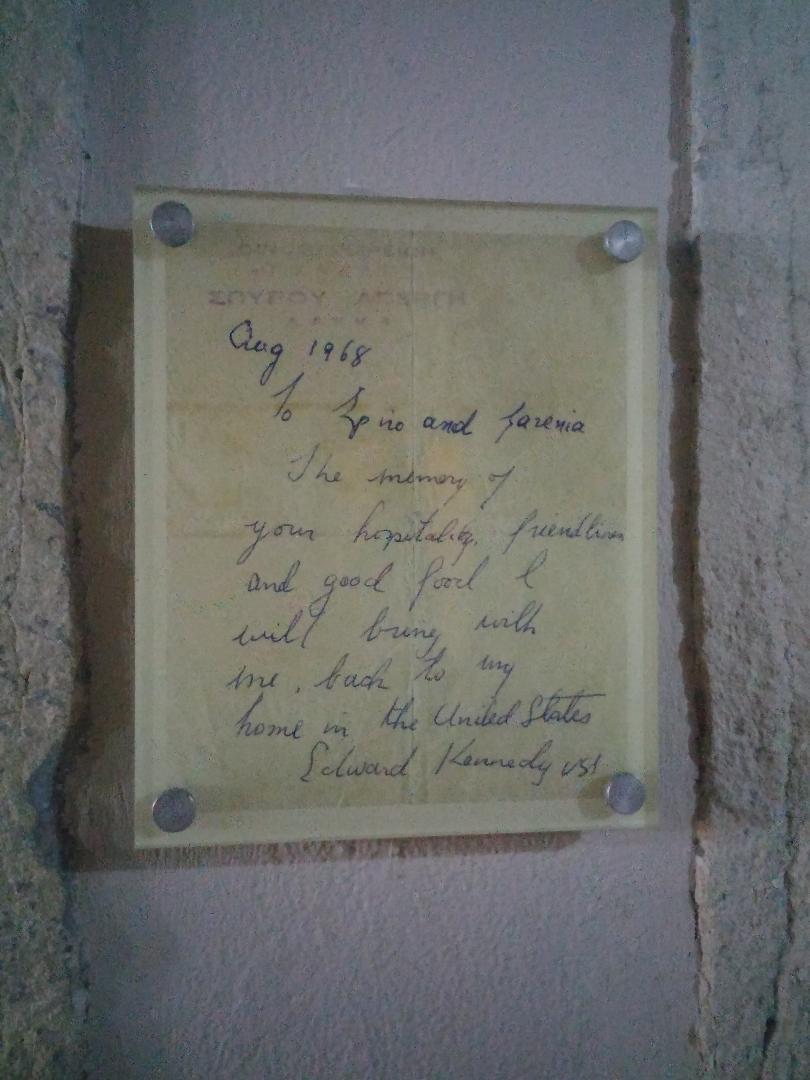 ΣΠΥΡΟΥ
Aug 1968
To Spiro and
The memory of
your hospitality, friendliness
and good food I
will bring with
me, back to my
home in the United States
Edward Kennedy USA